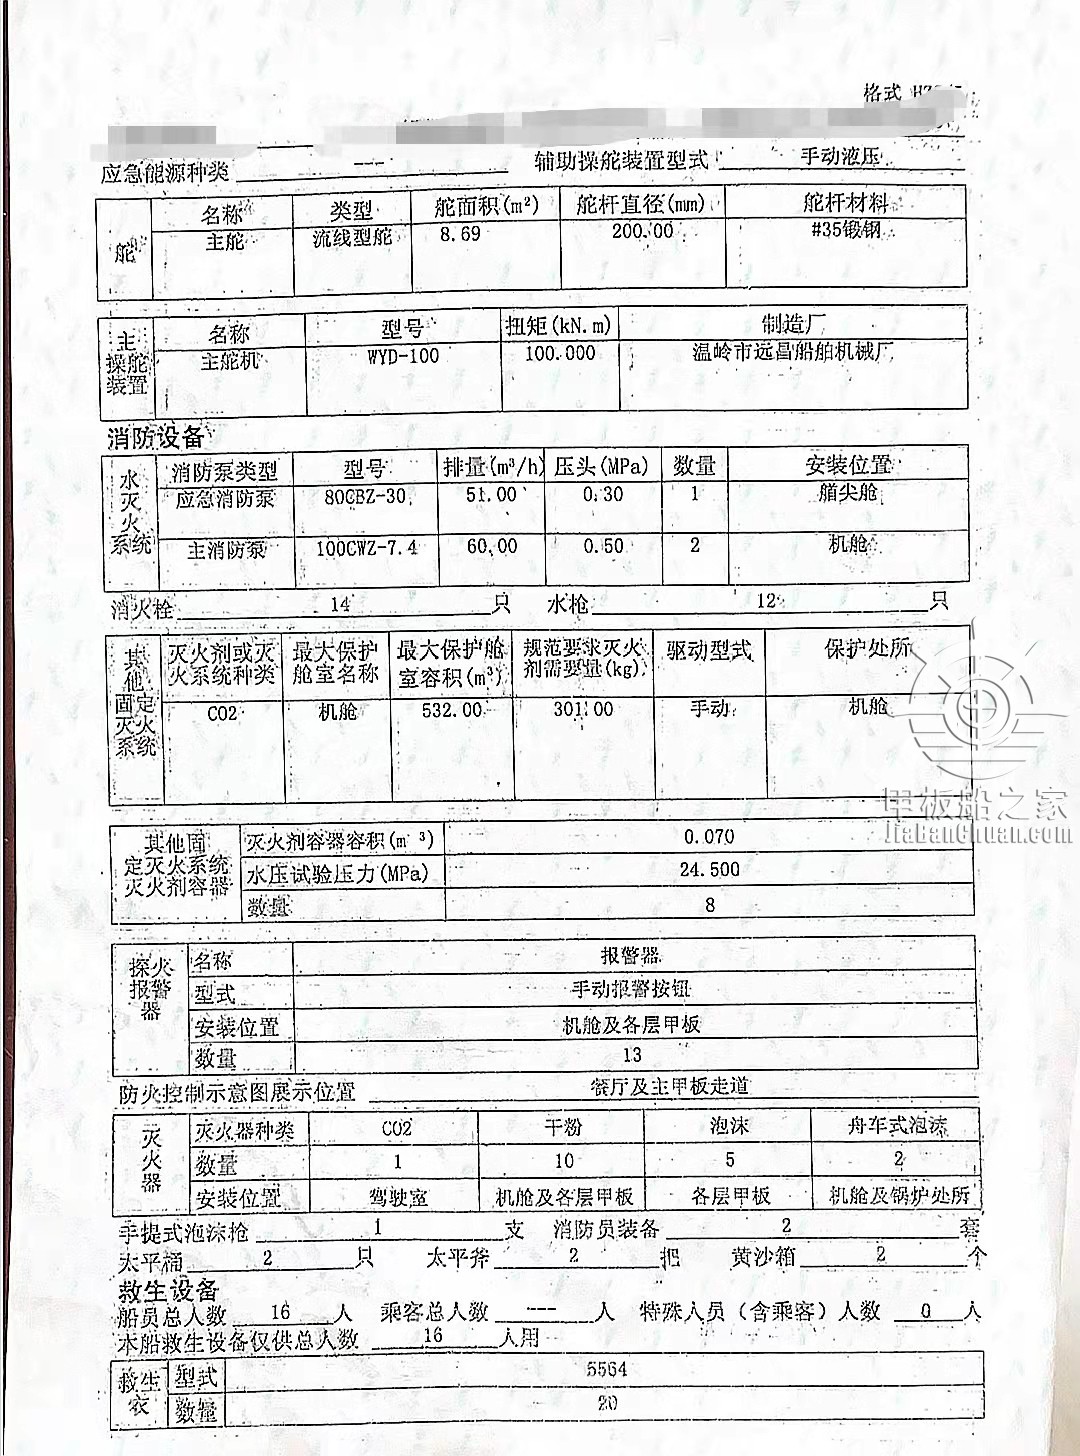 格式
应急能源种类 --- 辅助操舵装置型式 手动液压
舵 名称 类型 舵面积(m²) 舵杆直径(mm) 舵杆材料
主舵 流线型舵 8.69 200.00 #35锻钢
主操舵装置 名称 型号 扭矩(kN.m) 制造厂
主舵机 WYD-100 100.000 温岭市远昌船舶机械厂
消防设备
水灭火系统 消防泵类型 型号 排量(m³/h) 压头(MPa) 数量 安装位置
应急消防泵 80CBZ-30 51.00 0.30 1 艏尖舱
主消防泵 100CWZ-7.4 60.00 0.50 2 机舱
消火栓 14 只 水枪 12 只
其他固定灭火系统 灭火剂或灭火系统种类 最大保护舱室名称 最大保护舱室容积(m³) 规范要求灭火剂需要量(kg) 驱动型式 保护处所
CO2 机舱 532.00 301.00 手动 机舱
甲板船之家
JiaBanChuan.com
其他固定灭火系统灭火剂容器 灭火剂容器容积(m³) 0.070
水压试验压力(MPa) 24.500
数量 8
探火报警器 名称 报警器
型式 手动报警按钮
安装位置 机舱及各层甲板
数量 13
防火控制示意图展示位置 餐厅及主甲板走道
灭火器 灭火器种类 CO2 干粉 泡沫 舟车式泡沫
数量 1 10 5 2
安装位置 驾驶室 机舱及各层甲板 各层甲板 机舱及锅炉处所
手提式泡沫枪 1 支 消防员装备 2 套
太平桶 2 只 太平斧 2 把 黄沙箱 2 个
救生设备
船员总人数 16 人 乘客总人数 --- 人 特殊人员(含乘客)人数 0 人
本船救生设备仅供总人数 16 人用
救生衣 型式 5564
数量 20